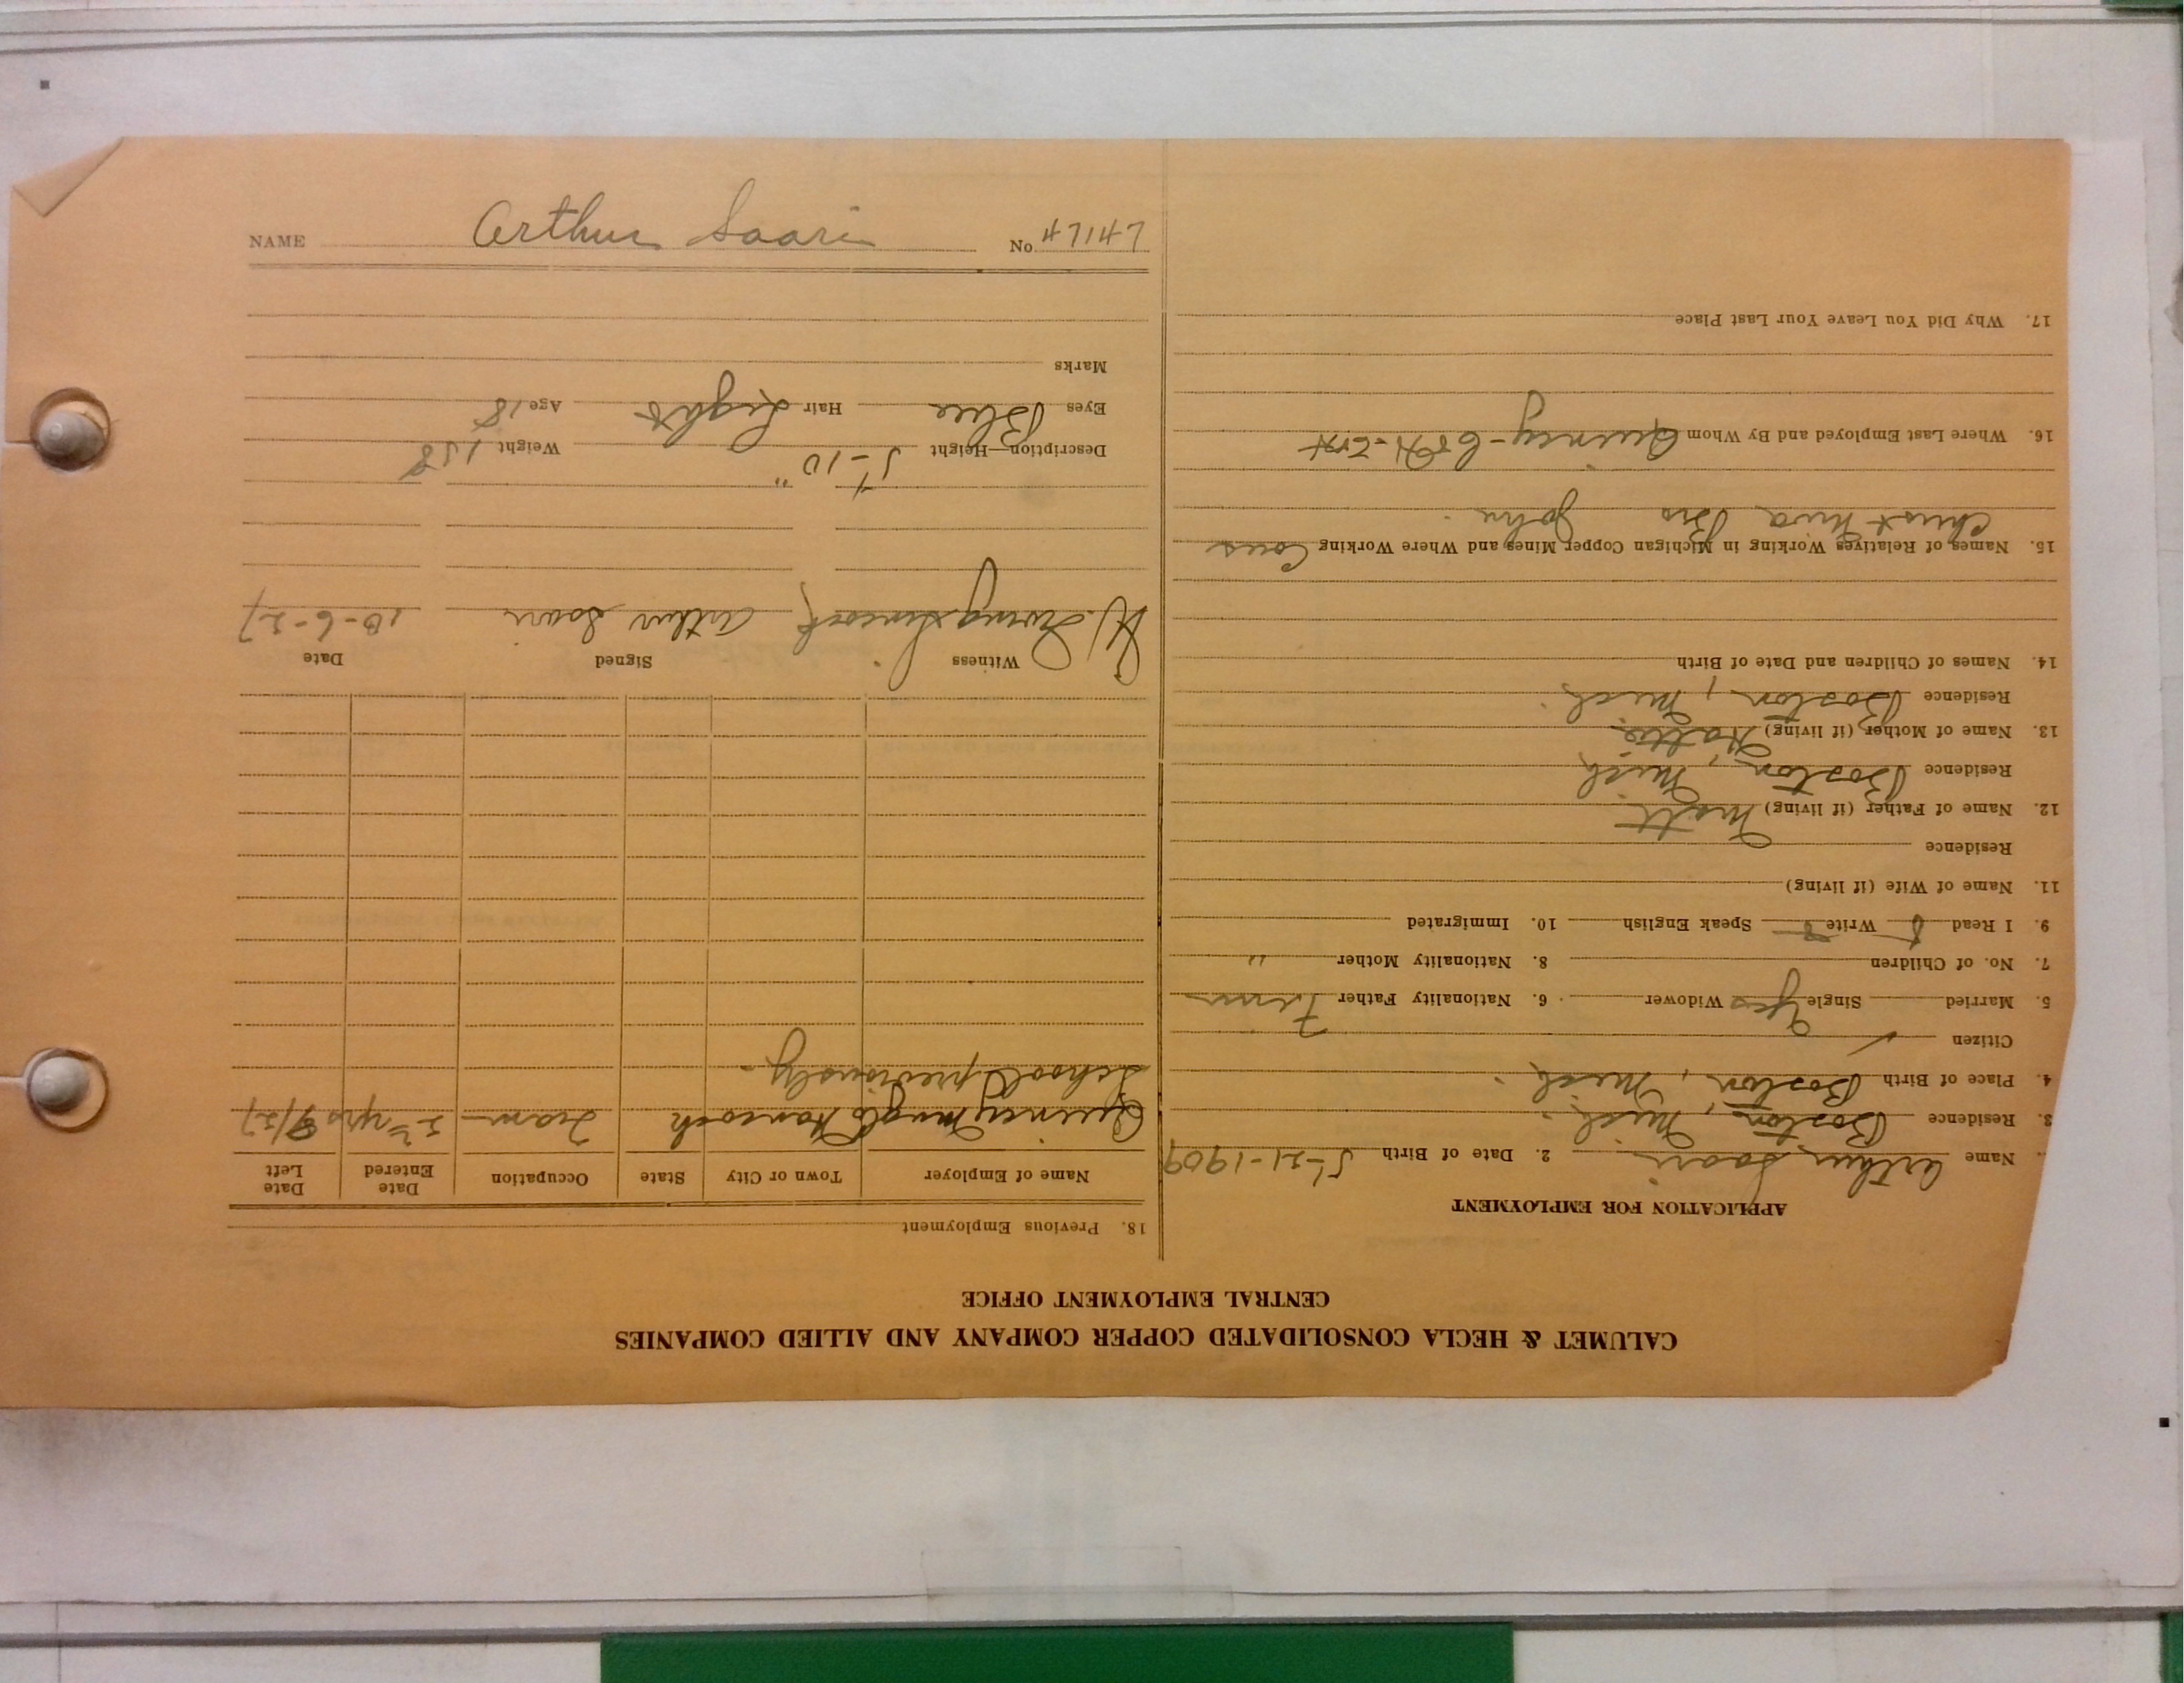 CALUMET & HECLA CONSOLIDATED COPPER COMPANY AND ALLIED COMPANIES
CENTRAL EMPLOYMENT OFFICE
APPLICATION FOR EMPLOYMENT
Name Arthur Saari 2. Date of Birth 5-21-1909
3. Residence Boston, Mich.
4. Place of Birth Boston, Mich.
Citizen ✓
5. Married Single Yes Widower 6. Nationality Father Finn
7. No. of Children 8. Nationality Mother "
9. I Read Write Speak English 10. Immigrated
11. Name of Wife (if living)
Residence
12. Name of Father (if living) Matt
Residence Boston, Mich
13. Name of Mother (if living)
Residence Boston, Mich.
14. Names of Children and Date of Birth
15. Names of Relatives Working in Michigan Copper Mines and Where Working Cous
Bro John.
16. Where Last Employed and By Whom Quincy-
17. Why Did You Leave Your Last Place
18. Previous Employment
Name of Employer Town or City State Occupation Date Entered Date Left
Quincy Mng Co Hancock Tram 2 yrs 9/27
School previously.
Witness Signed Date
Arthur Saari 10-6-27
Description—Height 5'-10" Weight 158
Eyes Blue Hair Light Age 18
Marks
NAME Arthur Saari No. 47147